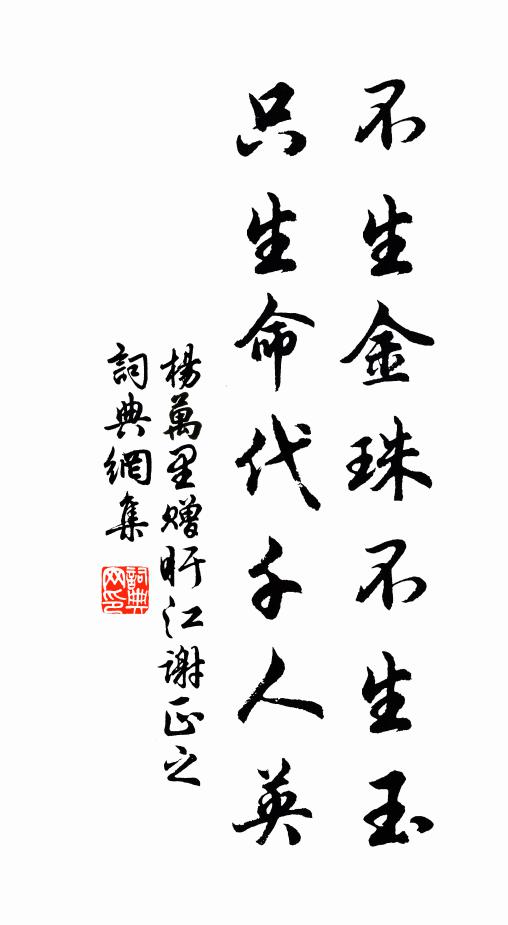 不生金珠不生玉
只生命代千人英
楊萬里贈盱江謝正之
詞典網集
詞典网印